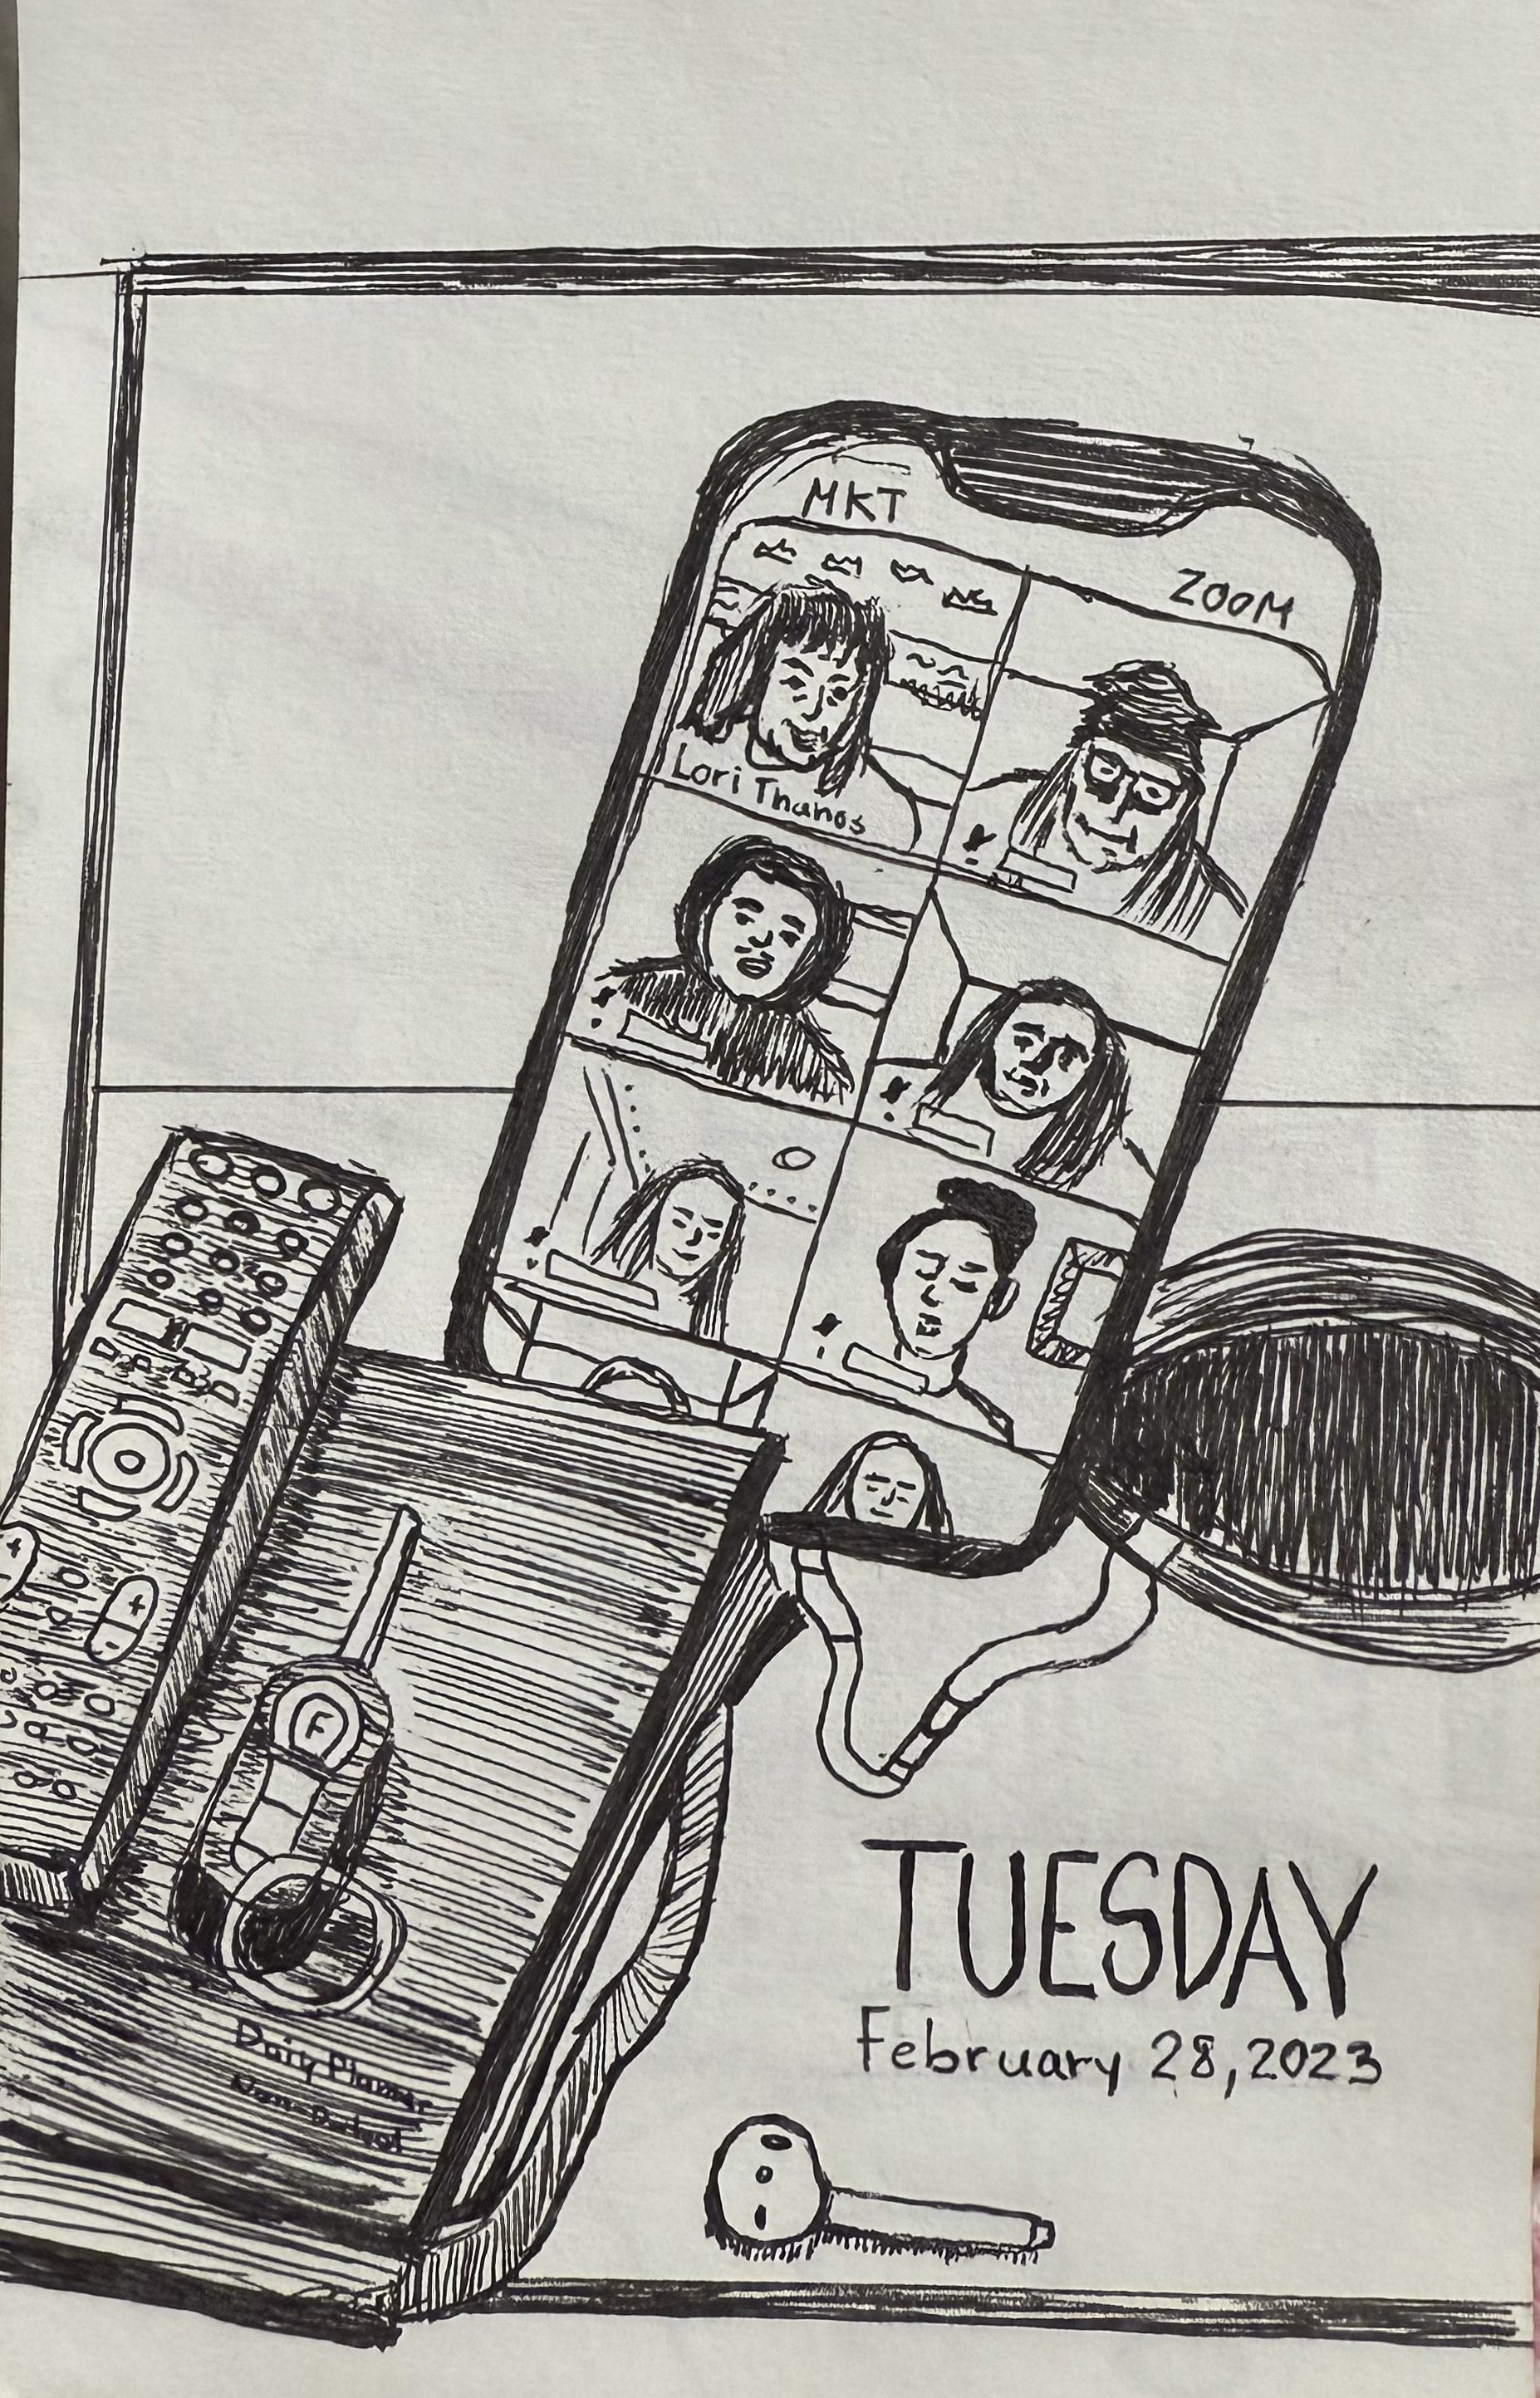 MKT
ZOOM
Lori Thanos
F
Daiy Planner
Non-Dated
TUESDAY
February 28, 2023